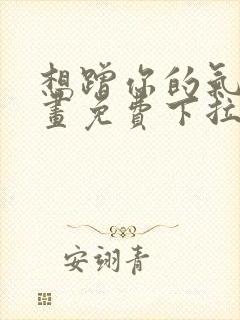 想蹭你的氣
畫免費下拉
安翊青